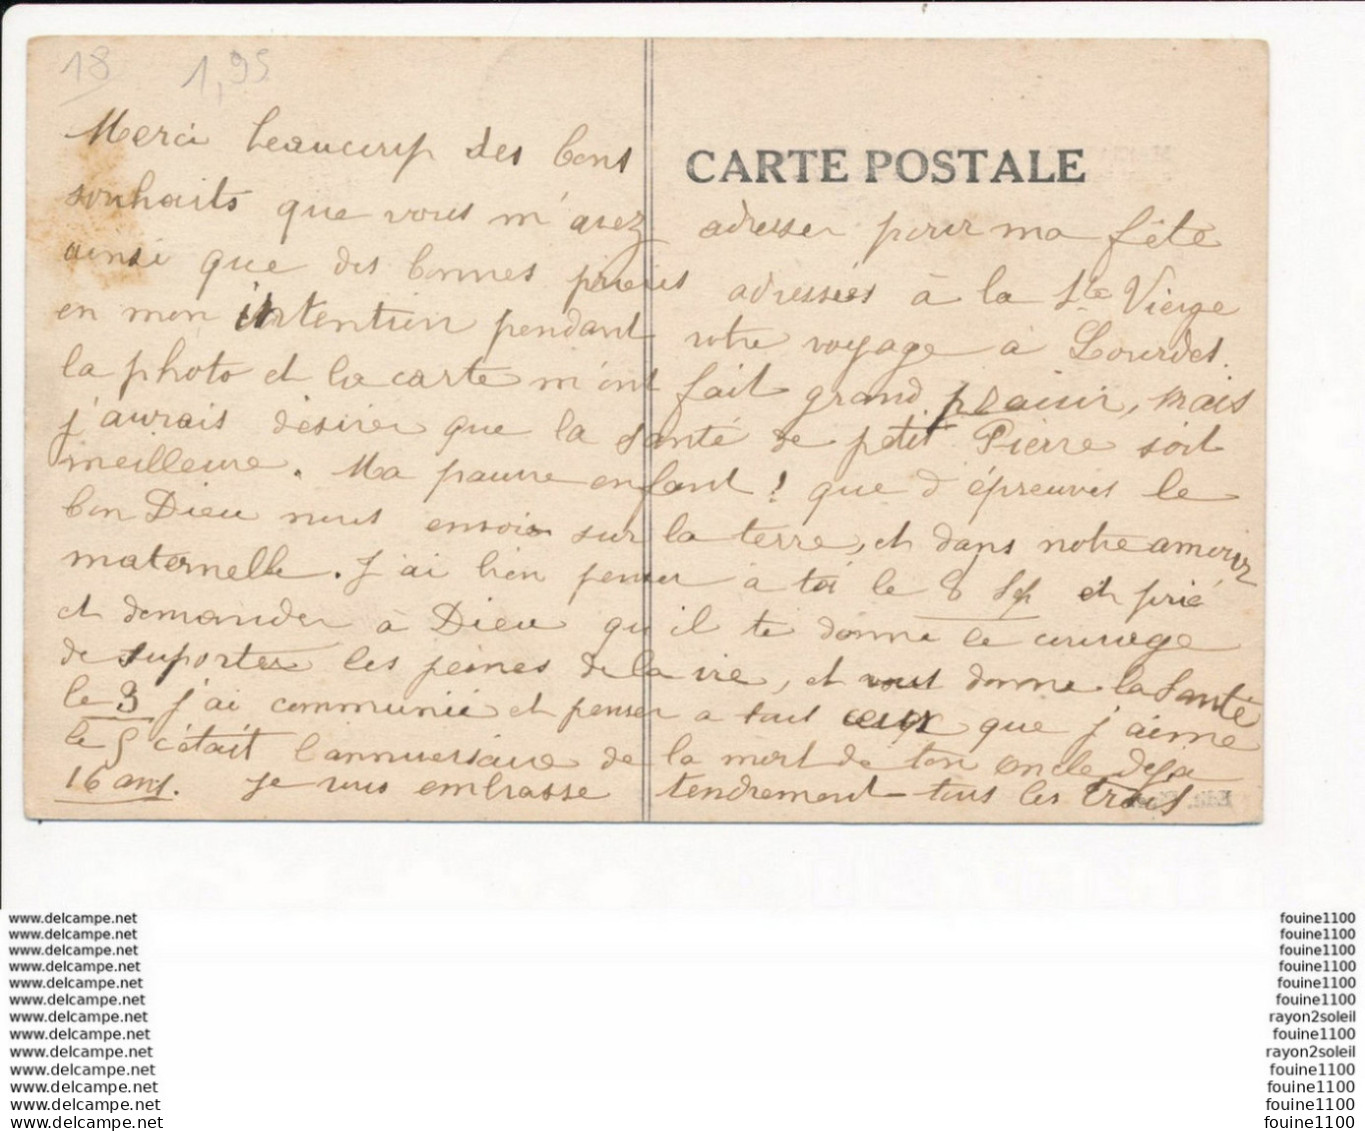 18 1,95
CARTE POSTALE
Merci beaucoup des bons
souhaits que vous m'avez adresser pour ma fête
ainsi que des bonnes prières adressées à la Ste Vierge
en mon intention pendant votre voyage à Lourdes.
la photo et la carte m'ont fait grand plaisir, mais
j'aurais désirer que la santé de petit Pierre soit
meilleure. Ma pauvre enfant ! que d'épreuves le
bon Dieu nous envoie sur la terre, et dans notre amour
maternelle. J'ai bien penser à toi le 8 Sep et prié
et demander à Dieu qu'il te donne le courage
de suporter les peines de la vie, et vous donne la Santé
le 3 j'ai communié et penser a tout ceux que j'aime
le 5 c'était l'anniversaire de la mort de ton oncle deja
16 ans. Je vous embrasse tendrement tous les trois
Edit.
www.delcampe.net fouine1100
www.delcampe.net fouine1100
www.delcampe.net fouine1100
www.delcampe.net fouine1100
www.delcampe.net fouine1100
www.delcampe.net fouine1100
www.delcampe.net rayon2soleil
www.delcampe.net fouine1100
www.delcampe.net rayon2soleil
www.delcampe.net fouine1100
www.delcampe.net fouine1100
www.delcampe.net fouine1100
www.delcampe.net fouine1100